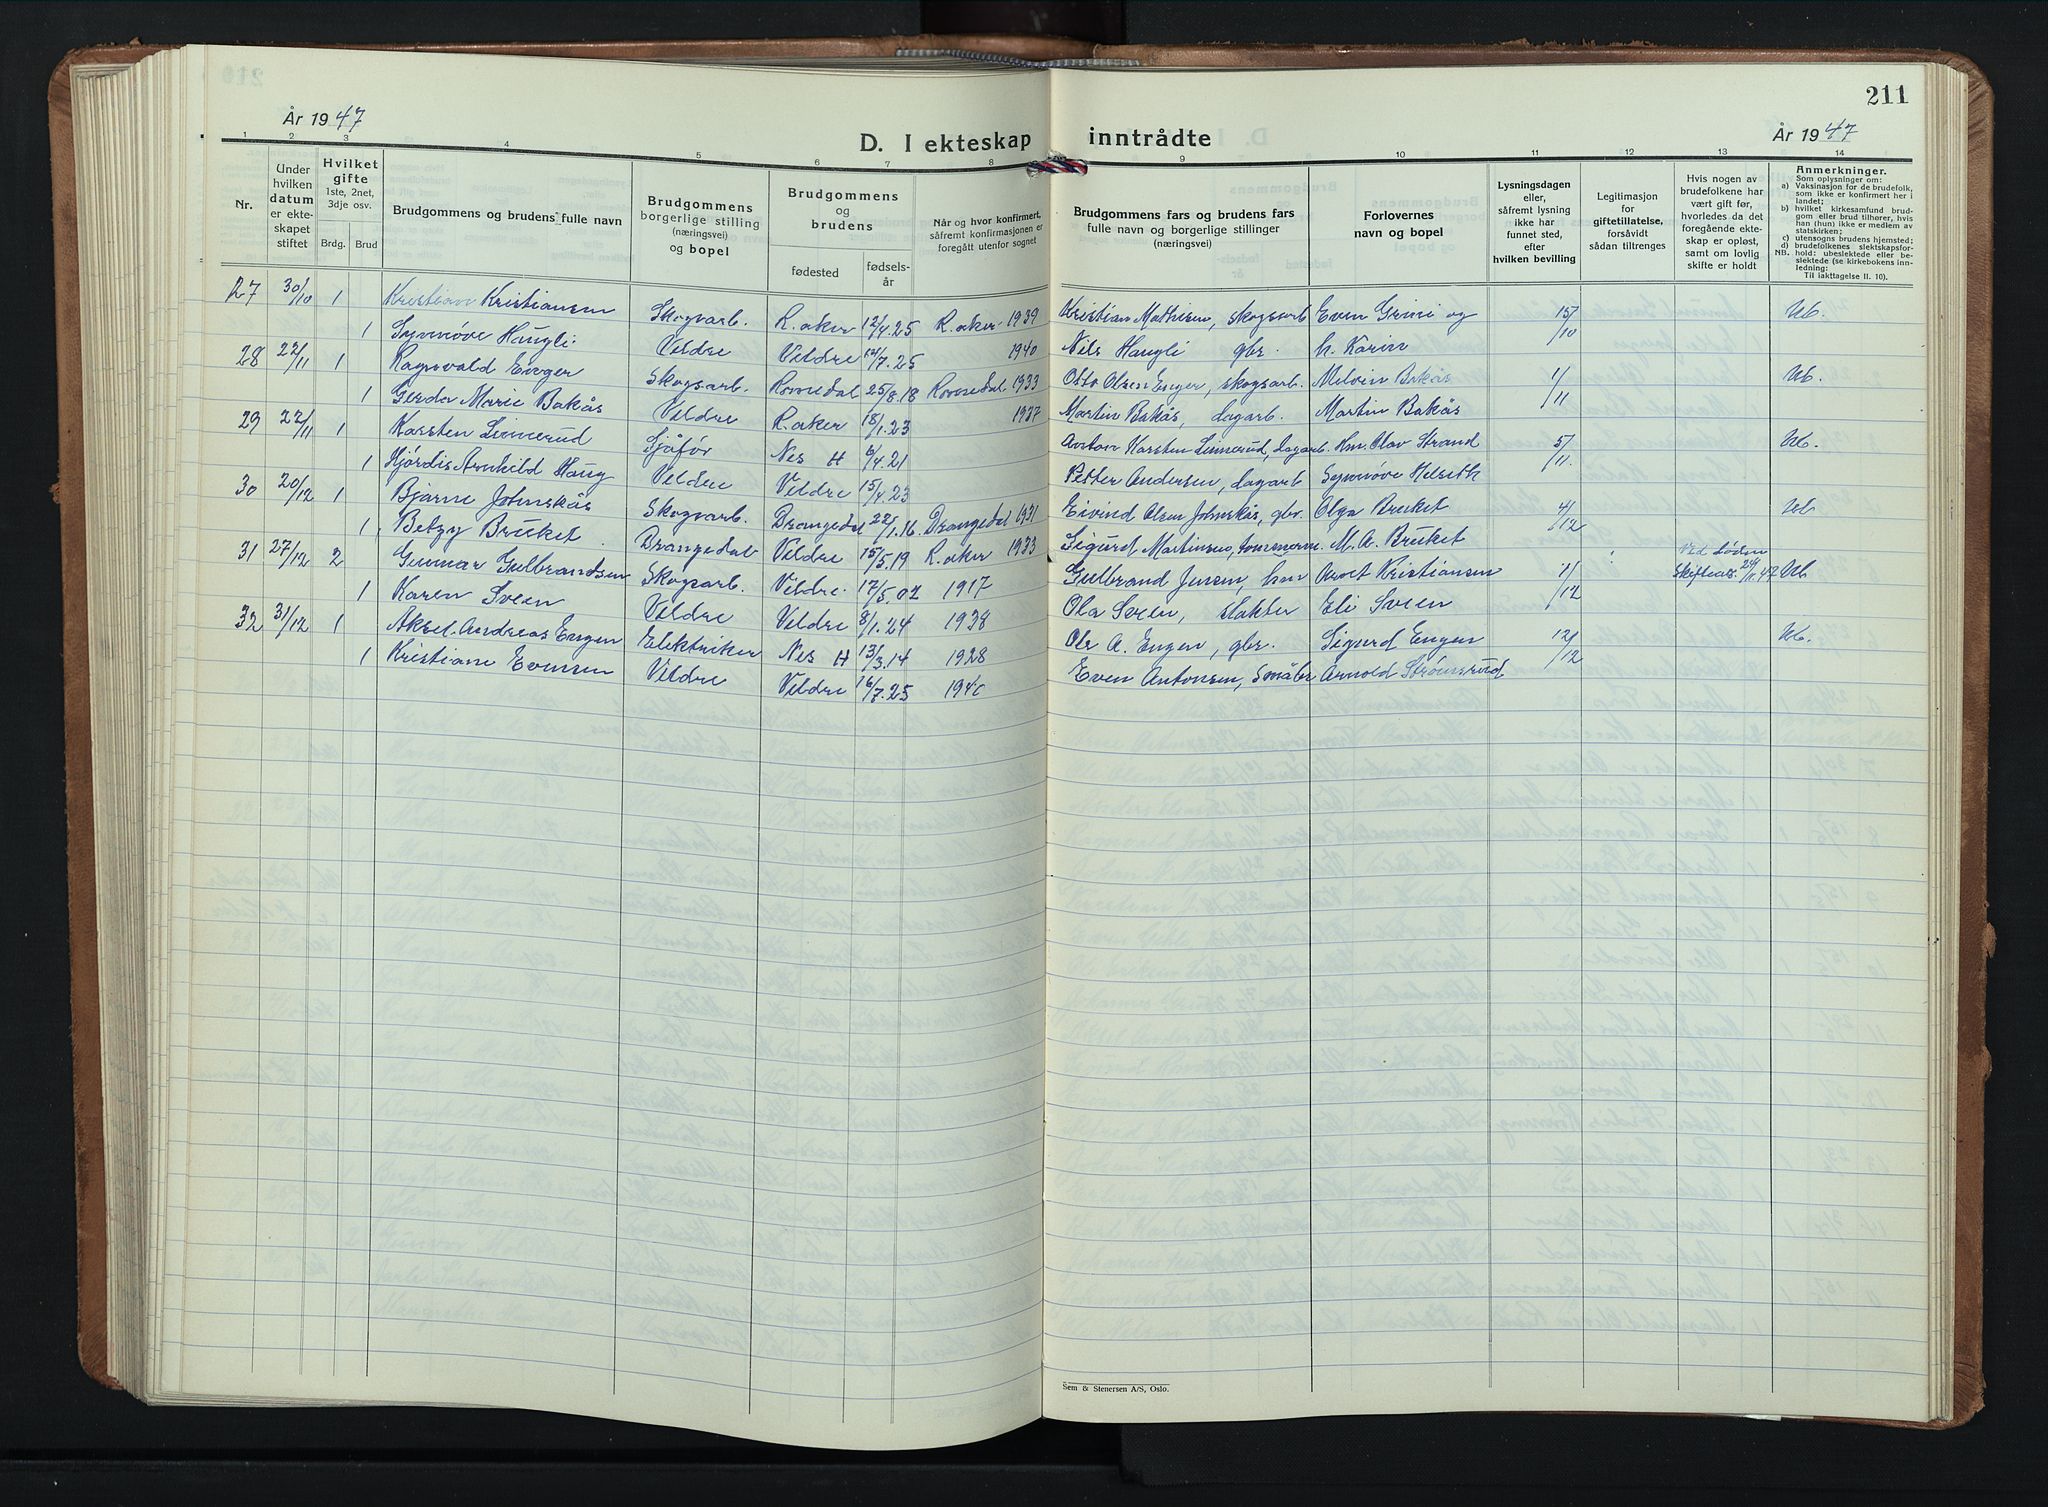 211
År 1947
D. I ekteskap inntrådte
År 1947
1 2 3 4 5 6 7 8 9 10 11 12 13 14
Nr.
Under hvilken datum er ekteskapet stiftet
Hvilket gifte 1ste, 2net, 3dje osv.
Brdg. Brud
Brudgommens og brudens fulle navn
Brudgommens borgerlige stilling (næringsvei) og bopel
Brudgommens og brudens
fødested
fødselsår
Når og hvor konfirmert, såfremt konfirmasjonen er foregått utenfor sognet
Brudgommens fars og brudens fars fulle navn og borgerlige stillinger (næringsvei)
Forlovernes navn og bopel
Lysningsdagen eller, såfremt lysning ikke har funnet sted, efter hvilken bevilling
Legitimasjon for giftetillatelse, forsåvidt sådan tiltrenges
Hvis nogen av brudefolkene har vært gift før, hvorledes da det foregående ekteskap er opløst, samt om lovlig skifte er holdt
Anmerkninger.
Som oplysninger om:
a) Vaksinasjon for de brudefolk, som ikke er konfirmert her i landet;
b) hvilket kirkesamfund brudgom eller brud tilhører, hvis han (hun) ikke er medlem av statskirken;
c) utensogns brudens hjemsted;
d) brudefolkenes slektskapsforhold: ubeslektede eller beslektede (se kirkebokens innledning:
NB. Til iakttagelse II. 10).
27 30/10 1 Kristian Kristiansen Skogsarb. R.aker 12/4.25 R.aker 1939 Kristian Mathisen, skogsarb Even Grini og 15/10 Ub.
1 Synnøve Haugli Veldre Veldre 12/7.25 1940 Nils Haugli gbr. h. Karin
28 22/11 1 Ragnvald Enger Skogsarb. Romedal 25/8.18 Romedal 1933 Otto Olsen Enger, skogsarb. Melvin Bakås 1/11 Ub.
1 Gerda Marie Bakås Veldre R.aker 18/1.23 1937 Martin Bakås, dagarb. Martin Bakås
29 22/11 1 Karsten Linnerud Sjåfør Nes H 6/4.21 Anton Karsten Linnerud, dagarb. Hm. Olav Strand 5/11. Ub.
1 Hjördis Arnhild Haug Veldre Veldre 15/4.23 Petter Andersen, dagarb Synnøve Helseth
30 20/12 1 Bjarne Johnskås Skogsarb. Drangedal 22/1.16 Drangedal 1931 Eivind Olsen Johnskås, gbr. Olga Bruket 4/12 Ub
1 Betzy Bruket Drangedal Veldre 15/5.19 R.aker 1933 Sigurd Martinsen, tømmerm. M. A. Bruket
31 27/12 2 Gunnar Gulbrandsen Skogsarb. Veldre. 17/5.02 1917 Gulbrand Jensen, hm Arnt Kristiansen 1/12 Ved døden Skifteatt. 29/11.47 Ub
1 Karen Sveen Veldre Veldre 8/1.24 1938 Ola Sveen, slakter Eli Sveen
32 31/12 1 Aksel Andreas Engen Elektriker Nes H 13/3.14 1928 Ole A. Engen, gbr. Sigurd Engen 12/12 Ub.
1 Kristiane Evensen Veldre Veldre 16/7.25 1940 Even Antonsen, småbr Arnold Strømsrud
Sem & Stenersen A/S, Oslo.